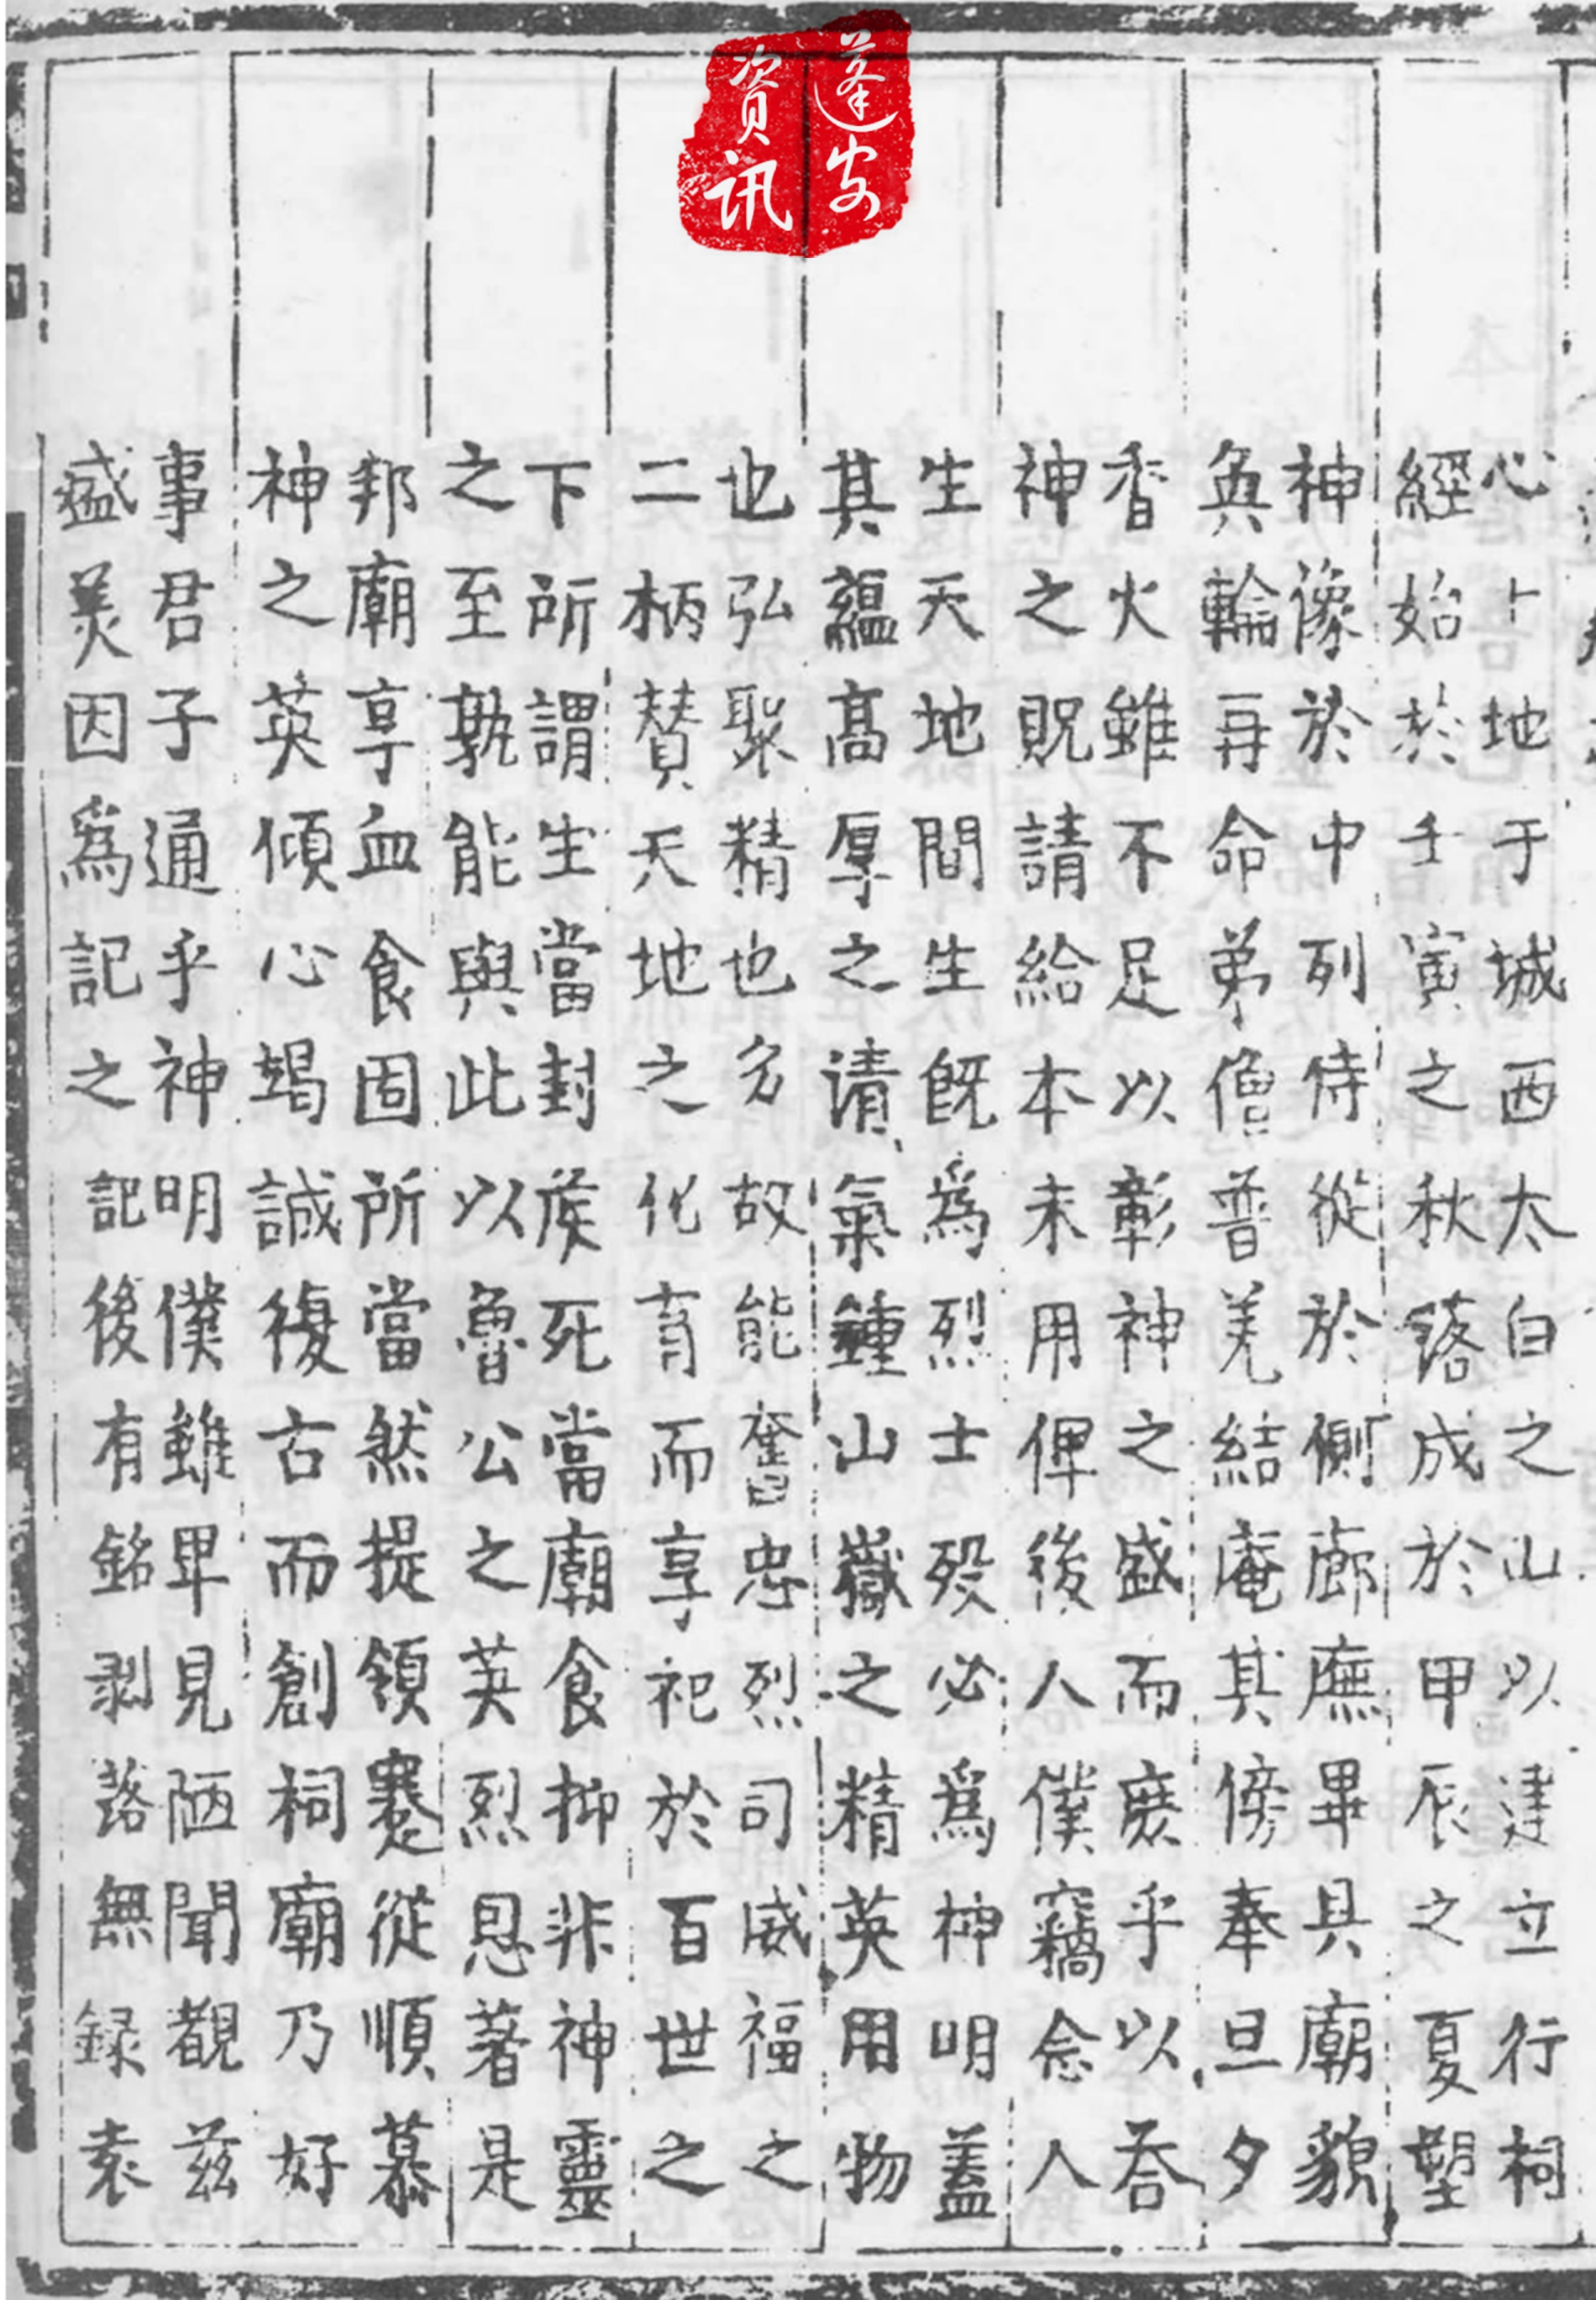 蓬安
资讯
心卜地于城西太白之山以建立行祠
經始於壬寅之秋落成於甲辰之夏塑
神像於中列侍從於側廊廡畢具廟貌
奐輪再命弟僧普羌結庵其傍奉旦夕
香火雖不足以彰神之盛而庶乎以荅
神之貺請給本末用俾後人僕竊念人
生天地間生既爲烈士殁必爲神明蓋
其蘊高厚之请氣鍾山嶽之精英用物
也弘聚精也多故能奮忠烈司威福之
二柄賛天地之化育而享祀於百世之
下所謂生當封侯死當廟食抑非神靈
之至孰能與此以魯公之英烈恩著是
邦廟享血食固所當然提領蹇從順慕
神之英傾心竭誠復古而創祠廟乃好
事君子通乎神明僕雖卑見陋聞覩兹
盛美因爲記之記後有銘剥落無録袁